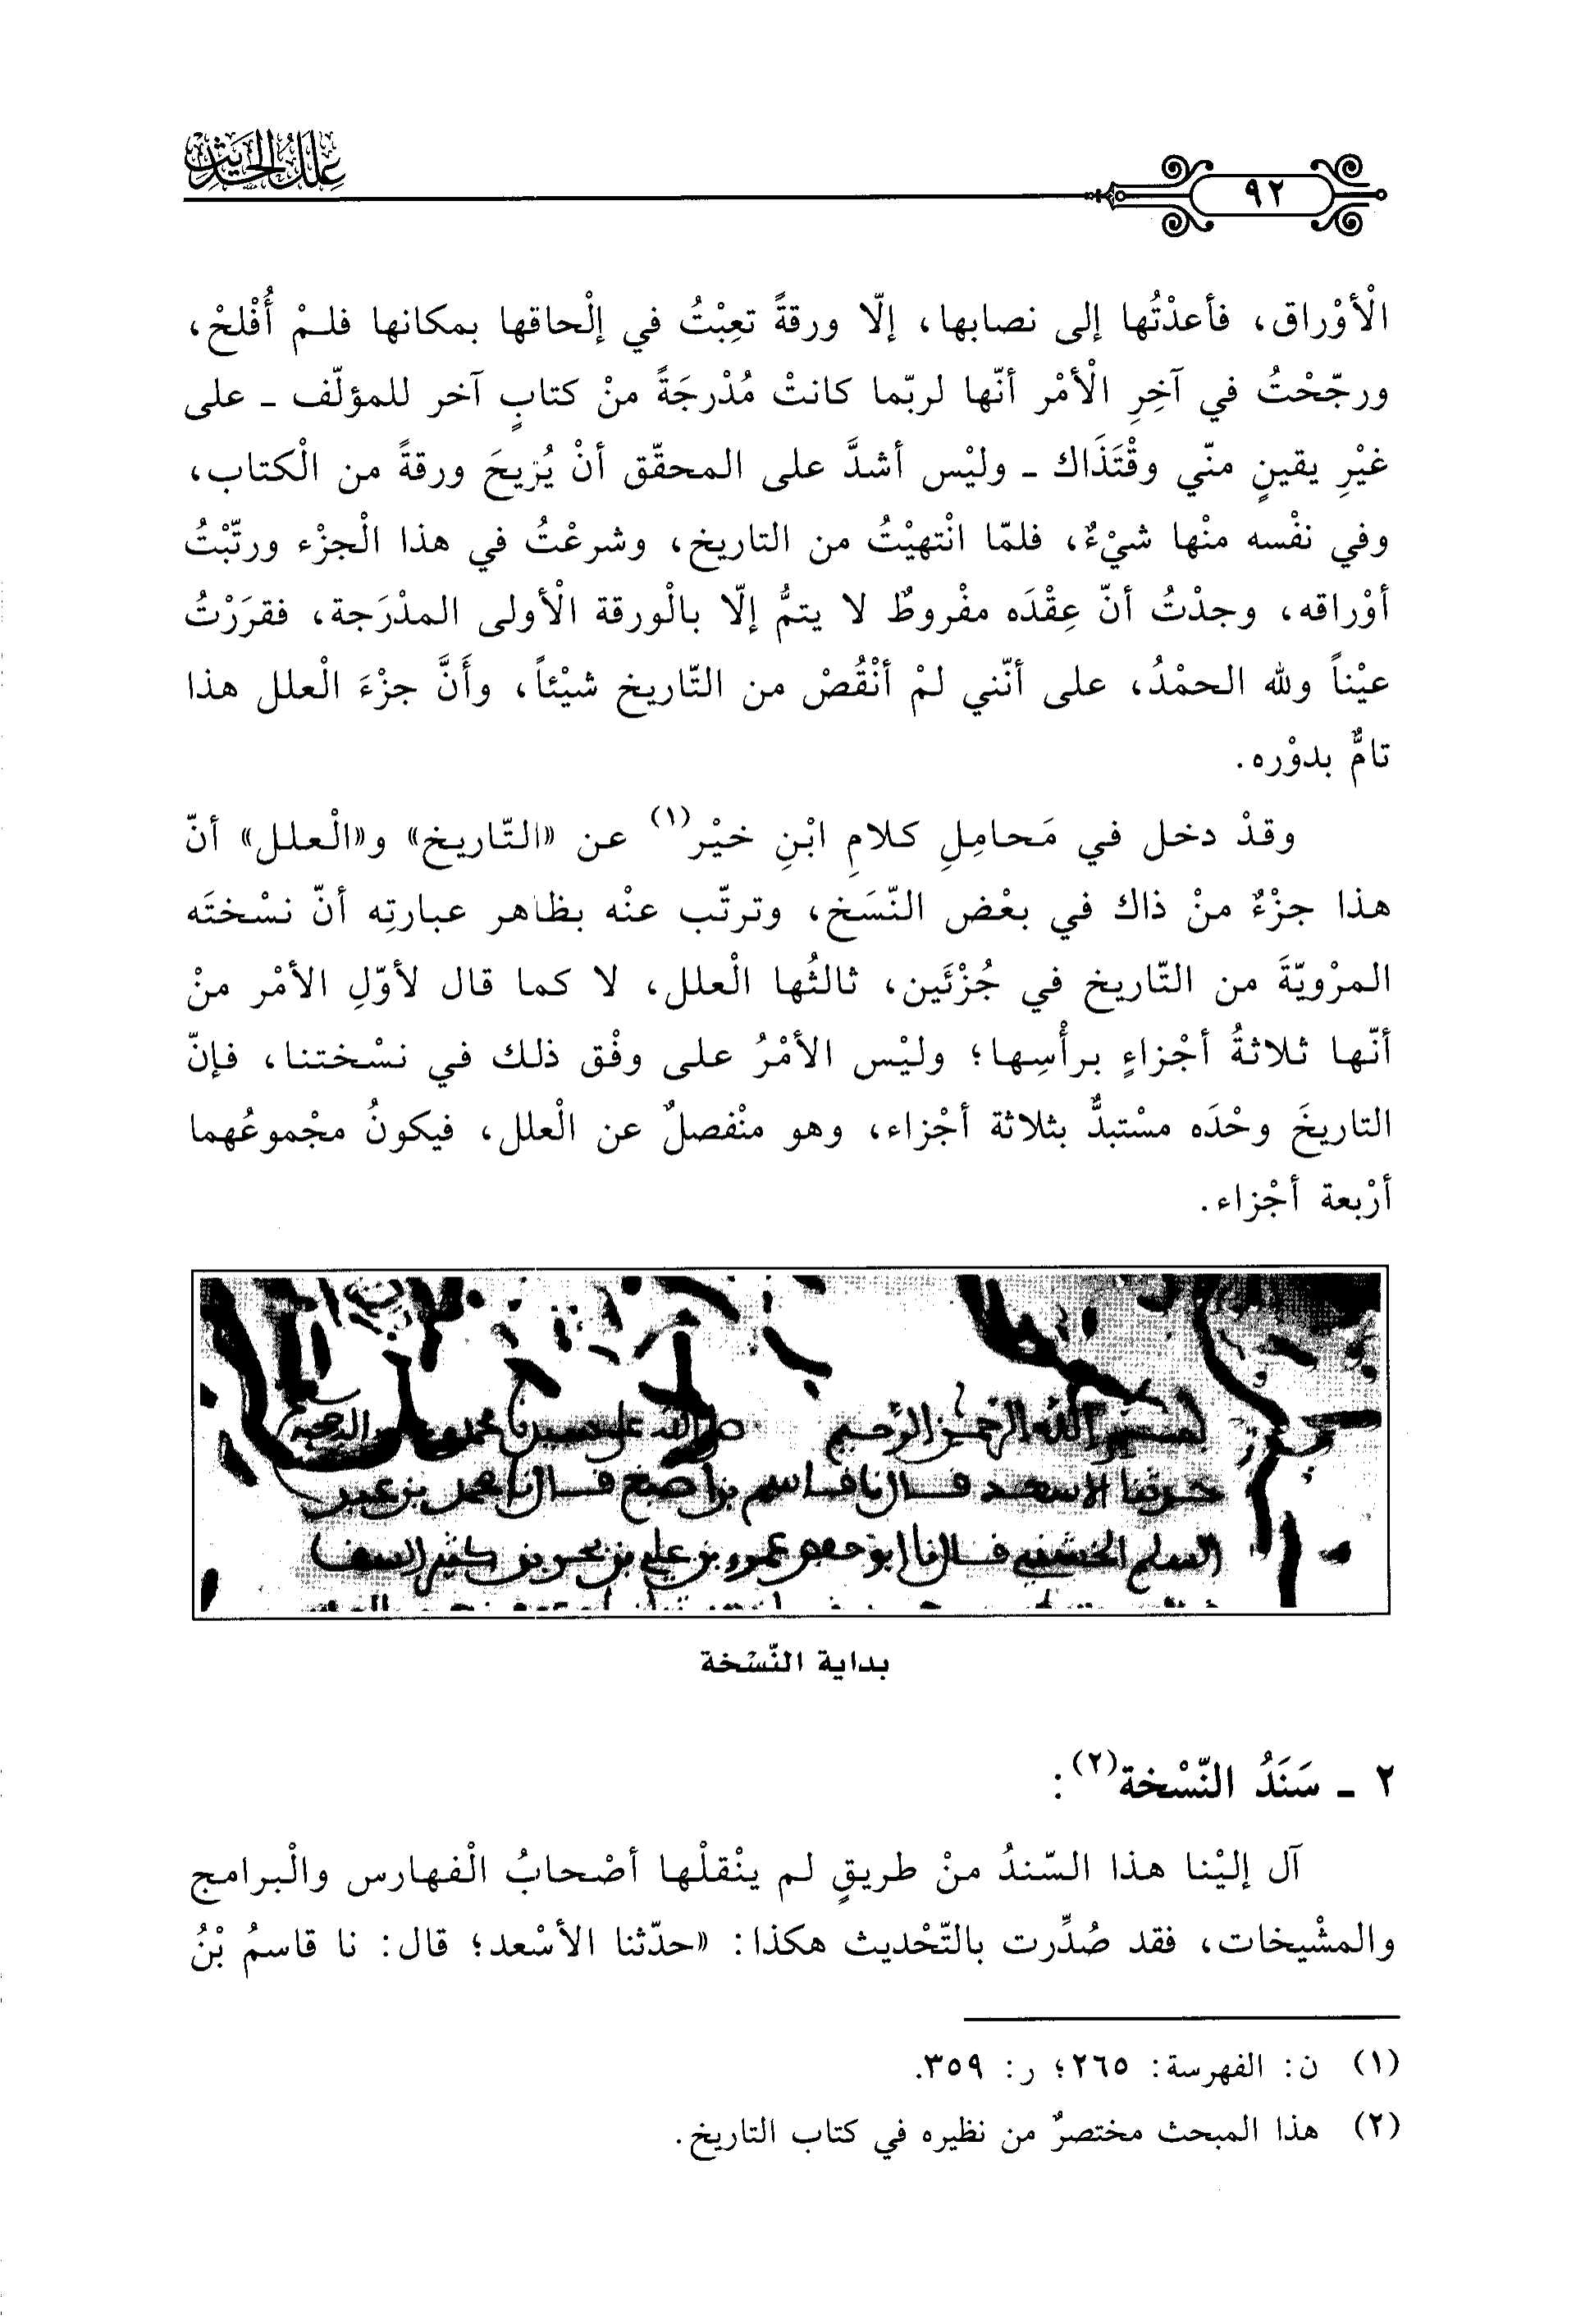 علل الحديث
٩٢
الْأوْراق، فأعدْتُها إلى نصابها، إلّا ورقةً تعِبْتُ في إلْحاقها بمكانها فلمْ أُفْلحْ،
ورجّحْتُ في آخِرِ الْأمْر أنّها لربّما كانتْ مُدْرجَةً منْ كتابٍ آخر للمؤلّف ـ على
غيْرِ يقينٍ منّي وقْتَذَاك ـ وليْس أشدَّ على المحقّق أنْ يُزيحَ ورقةً من الْكتاب،
وفي نفْسه منْها شيْءٌ، فلمّا انْتهيْتُ من التاريخ، وشرعْتُ في هذا الْجزْء ورتّبْتُ
أوْراقه، وجدْتُ أنّ عِقْدَه مفْروطٌ لا يتمُّ إلّا بالْورقة الْأولى المدْرَجة، فقرَرْتُ
عيْناً ولله الحمْدُ، على أنّني لمْ أنْقُصْ من التّاريخ شيْئاً، وأَنَّ جزْءَ الْعلل هذا
تامٌّ بدوْره.
وقدْ دخل في مَحامِلِ كلامِ ابْنِ خيْر(١) عن «التّاريخ» و«الْعلل» أنّ
هذا جزْءٌ منْ ذاك في بعْض النّسَخ، وترتّب عنْه بظاهر عبارتِه أنّ نسْختَه
المرْويّةَ من التّاريخ في جُزْئَين، ثالثُها الْعلل، لا كما قال لأوّلِ الأمْر منْ
أنّها ثلاثةُ أجْزاءٍ برأْسِها؛ وليْس الأمْرُ على وفْق ذلك في نسْختنا، فإنّ
التاريخَ وحْدَه مسْتبدٌّ بثلاثة أجْزاء، وهو منْفصلٌ عن الْعلل، فيكونُ مجْموعُهما
أرْبعة أجْزاء.
بسم الله الرحمن الرحيم صلى الله على
حدثنا الاسعد قال نا قاسم بن اصبغ قال نا محمد بن عبد
السلام الخشني قال نا ابو حفص عمرو بن علي بن بحر بن كثير السقا
بداية النّسْخة
٢ ـ سَنَدُ النّسْخة(٢):
آل إليْنا هذا السّندُ منْ طريقٍ لم ينْقلْها أصْحابُ الْفهارس والْبرامج
والمشْيخات، فقد صُدِّرت بالتّحْديث هكذا: «حدّثنا الأسْعد؛ قال: نا قاسمُ بْنُ
(١) ن: الفهرسة: ٢٦٥؛ ر: ٣٥٩.
(٢) هذا المبحث مختصرٌ من نظيره في كتاب التاريخ.